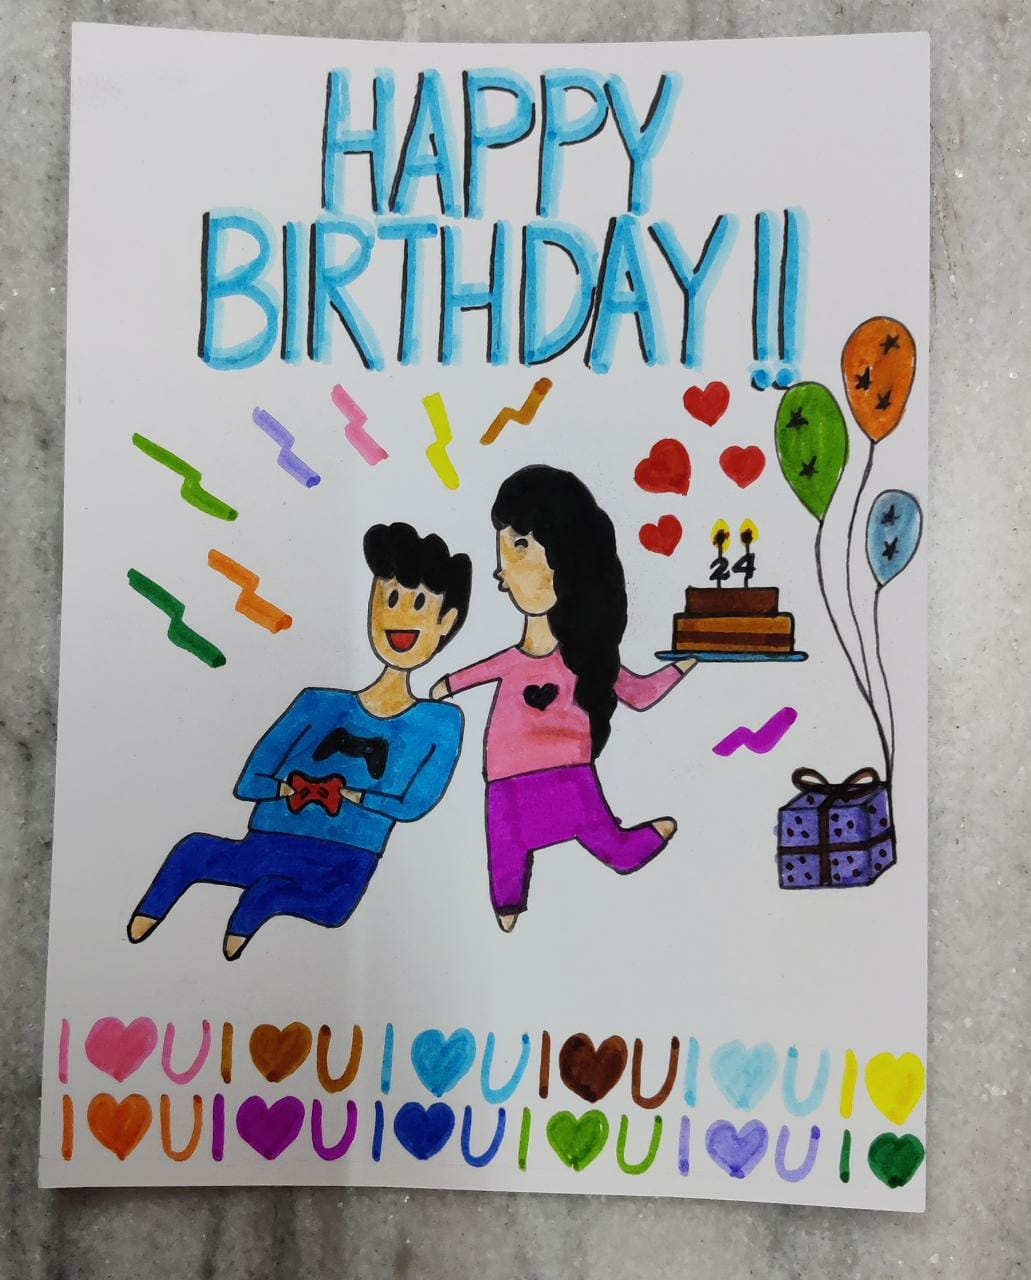 HAPPY
BIRTHDAY!!
24
I ♥ U I ♥ U I ♥ U I ♥ U I ♥ U I ♥
I ♥ U I ♥ U I ♥ U I ♥ U I ♥ U I ♥